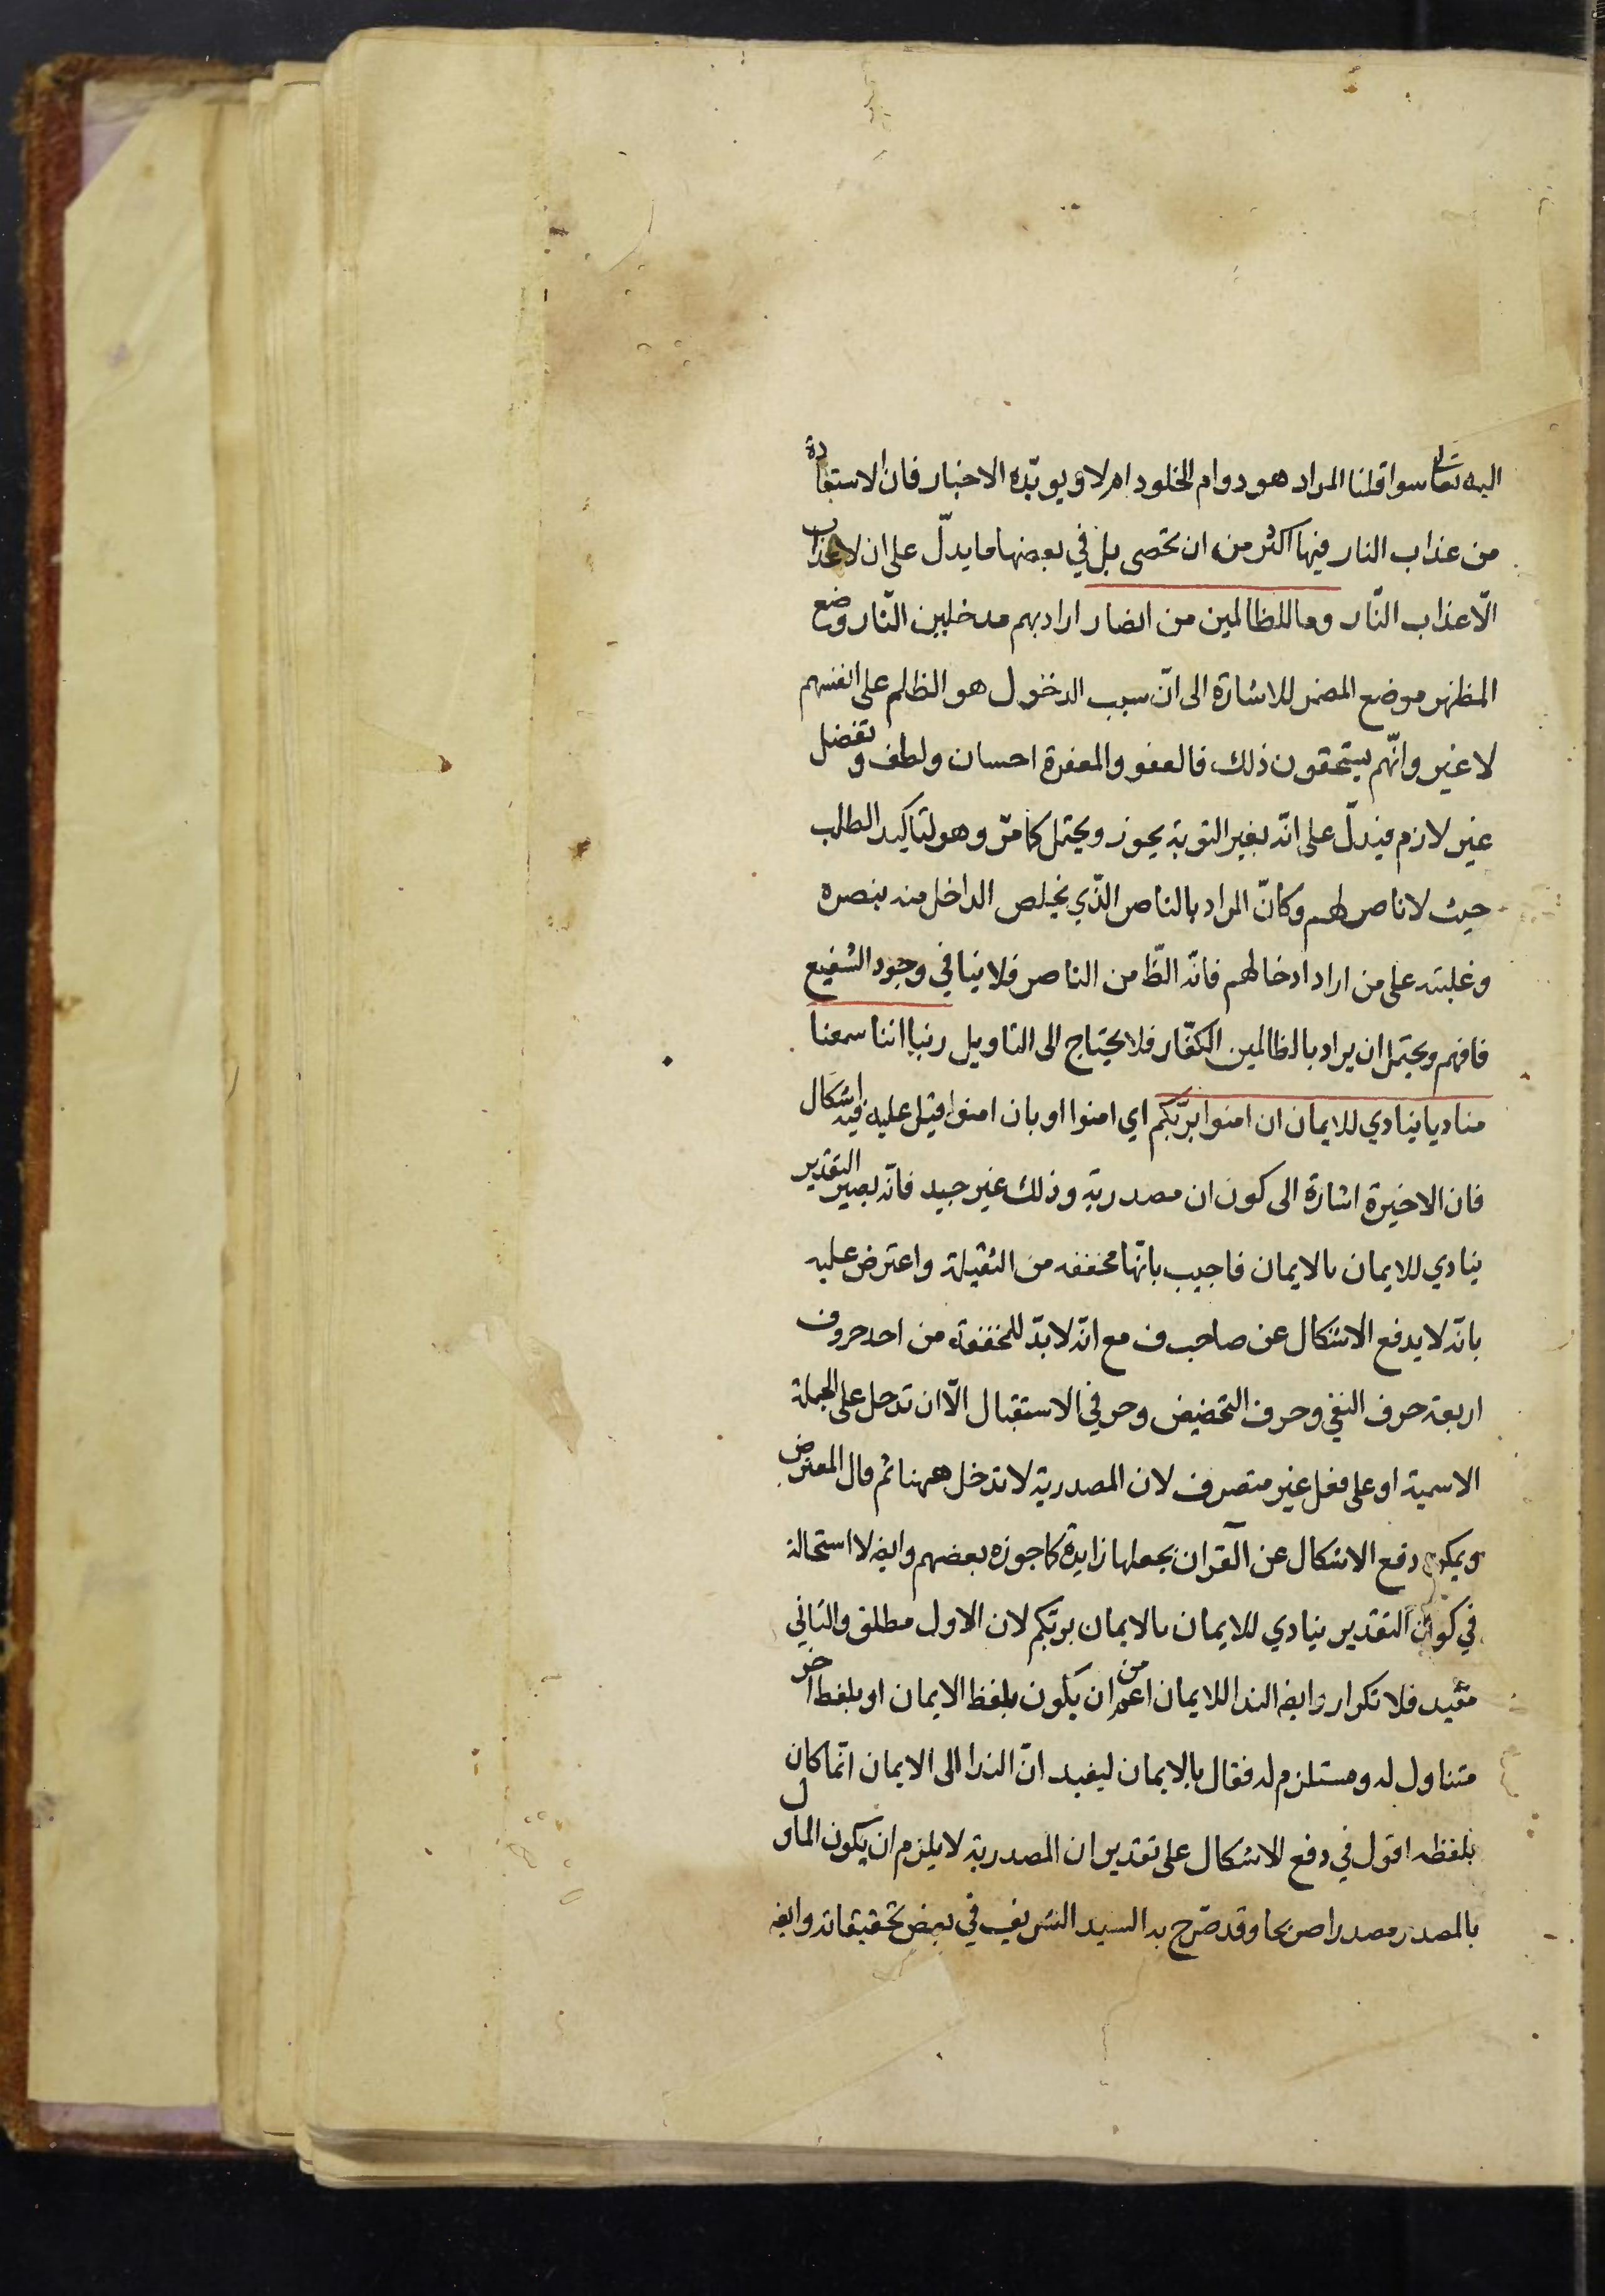 اليه تعالى سوا قلنا المراد هو دوام الخلود ام لا ويويّده الاخبار فان الاستعاذة
من عذاب النار فيها اكثر من ان تحصى بل في بعضها ما يدلّ على ان لا عذاب
الّا عذاب النّار وما للظالمين من انصار اراد بهم مدخلين النّار وضع
المظهر موضع المضمر للاشارة الى انّ سبب الدخول هو الظلم على انفسهم
لا غير وانّهم يستحقون ذلك فالعفو والمغفرة احسان ولطف وتفضل
غير لازم فيدلّ على انّه بغير التوبة يجوز ويحتمل كما مرّ وهو لتاكيد الطلب
حيث لا ناصر لهم وكانّ المراد بالناصر الّذي يخلص الداخل منه بنصره
وغلبته على من اراد ادخالهم فانّه الظّ من الناصر فلا ينافي وجود الشفيع
فافهم ويحتمل ان يراد بالظالمين الكفّار فلا يحتاج الى التاويل ربنا اننا سمعنا
مناديا ينادي للايمان ان امنوا بربّكم اي امنوا او بان امنوا قيل عليه فيه اشكال
فان الاخيرة اشارة الى كون ان مصدرية وذلك غير جيد فانّه يصير التقدير
ينادي للايمان بالايمان فاجيب بانّها مخففه من الثقيلة واعترض عليه
بانّه لا يدفع الاشكال عن صاحب ف مع انّه لا بدّ للمخففة من احد حروف
اربعة حرف النفي وحرف التحضيض وحرفي الاستقبال الّا ان تدخل على الجملة
الاسمية او على فعل غير متصرف لان المصدرية لا تدخل ههنا ثم قال المعترض
ويمكن دفع الاشكال عن القرآن بجعلها زايدة كما جوزه بعضهم وايضا لا استحالة
في كون التقدير ينادي للايمان بالايمان بربّكم لان الاول مطلق والثاني
مقيد فلا تكرار وايضا الندا للايمان اعم من ان يكون بلفظ الايمان او بلفظ اخر
متناول له ومستلزم له فقال بالايمان ليفيد انّ الندا الى الايمان انّما كان
بلفظه اقول في دفع الاشكال على تقدير ان المصدرية لا يلزم ان يكون الماول
بالمصدر مصدرا صريحا وقد صرّح به السيد الشريف في بعض تحقيقاته وايضا